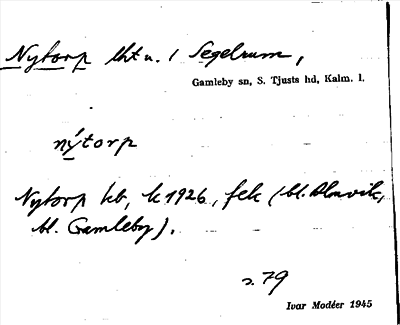 Nytorp lht u. / Segelrum,
Gamleby sn, S. Tjusts hd, Kalm. l.
nýtorp
Nytorp kb, k 1926, fek (bl. Blomvik,
bl. Gamleby).
s. 79
Ivar Modéer 1945